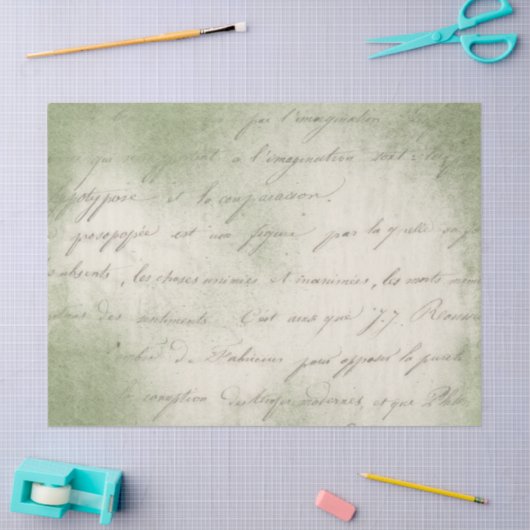 par l'imagination
à l'imagination sont:
potypose et la comparaison.
prosopopée est une figure par la quelle
absents, les choses animées et inanimées, les morts même
des sentiments. C'est ainsi que J.J. Rousse
l'ombre de Fabricius pour opposer la pureté
la corruption des temps modernes, et que